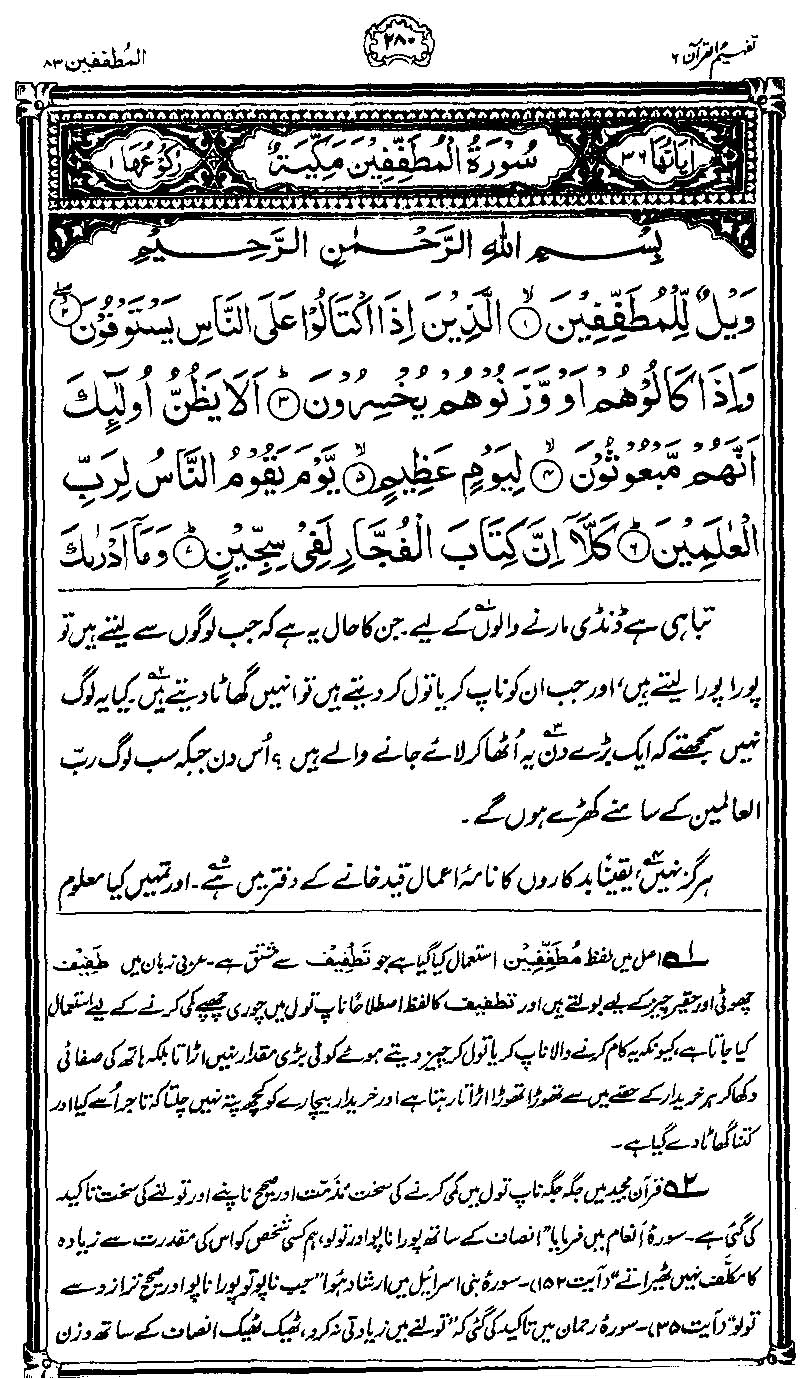 تفہیم القرآن ۶
۲۸۰
المُطففین ۸۳
اٰیاتُہَا ۳۶
سُوْرَۃُ الْمُطَفِّفِیْنَ مَکِّیَّۃٌ
رُکُوْعُہَا ۱
بِسْمِ اللهِ الرَّحْمٰنِ الرَّحِیْمِ
وَیْلٌ لِّلْمُطَفِّفِیْنَ ۙ﴿۱﴾ الَّذِیْنَ اِذَا اکْتَالُوْا عَلَی النَّاسِ یَسْتَوْفُوْنَ ﴿۲﴾
وَاِذَا کَالُوْهُمْ اَوْ وَّزَنُوْهُمْ یُخْسِرُوْنَ ؕ﴿۳﴾ اَلَا یَظُنُّ اُولٰٓئِکَ
اَنَّهُمْ مَّبْعُوْثُوْنَ ۙ﴿۴﴾ لِیَوْمٍ عَظِیْمٍ ۙ﴿۵﴾ یَّوْمَ یَقُوْمُ النَّاسُ لِرَبِّ
الْعٰلَمِیْنَ ؕ﴿۶﴾ کَلَّاۤ اِنَّ کِتَابَ الْفُجَّارِ لَفِیْ سِجِّیْنٍ ؕ﴿۷﴾ وَمَاۤ اَدْرٰىکَ
تباہی ہے ڈنڈی مارنے والوں۱ کے لیے۔ جن کا حال یہ ہے کہ جب لوگوں سے لیتے ہیں تو
پورا پورا لیتے ہیں، اور جب ان کو ناپ کر یا تول کر دیتے ہیں تو انہیں گھاٹا دیتے ہیں۲۔ کیا یہ لوگ
نہیں سمجھتے کہ ایک بڑے دن۳ یہ اُٹھا کر لائے جانے والے ہیں؟ اُس دن جبکہ سب لوگ ربّ
العالمین کے سامنے کھڑے ہوں گے۔
ہرگز نہیں۴، یقیناً بدکاروں کا نامۂ اعمال قید خانے کے دفتر میں ہے۵۔ اور تمہیں کیا معلوم
۱ اصل میں لفظ مُطَفِّفِیْن استعمال کیا گیا ہے جو تَطْفِیْف سے مشتق ہے۔ عربی زبان میں طَفِیْف
چھوٹی اور حقیر چیز کے لیے بولتے ہیں اور تطفیف کا لفظ اصطلاحاً ناپ تول میں چوری چھپے کمی کرنے کے لیے استعمال
کیا جاتا ہے، کیونکہ یہ کام کرنے والا ناپ کر یا تول کر چیز دیتے ہوئے کوئی بڑی مقدار نہیں اڑاتا بلکہ ہاتھ کی صفائی
دکھا کر ہر خریدار کے حصّے میں سے تھوڑا تھوڑا اڑاتا رہتا ہے اور خریدار بیچارے کو کچھ پتہ نہیں چلتا کہ تاجر اُسے کیا اور
کتنا گھاٹا دے گیا ہے۔
۲ قرآن مجید میں جگہ جگہ ناپ تول میں کمی کرنے کی سخت مذمت اور صحیح ناپنے اور تولنے کی سخت تاکید
کی گئی ہے۔ سورۂ انعام میں فرمایا ”انصاف کے ساتھ پورا ناپو اور تولو، ہم کسی شخص کو اس کی مقدرت سے زیادہ
کا مکلَّف نہیں ٹھیراتے“ (آیت ۱۵۲)۔ سورۂ بنی اسرائیل میں ارشاد ہُوا ”جب ناپو تو پورا ناپو اور صحیح ترازو سے
تولو“ (آیت ۳۵)۔ سورۂ رحمان میں تاکید کی گئی کہ ”تولنے میں زیادتی نہ کرو، ٹھیک ٹھیک انصاف کے ساتھ وزن